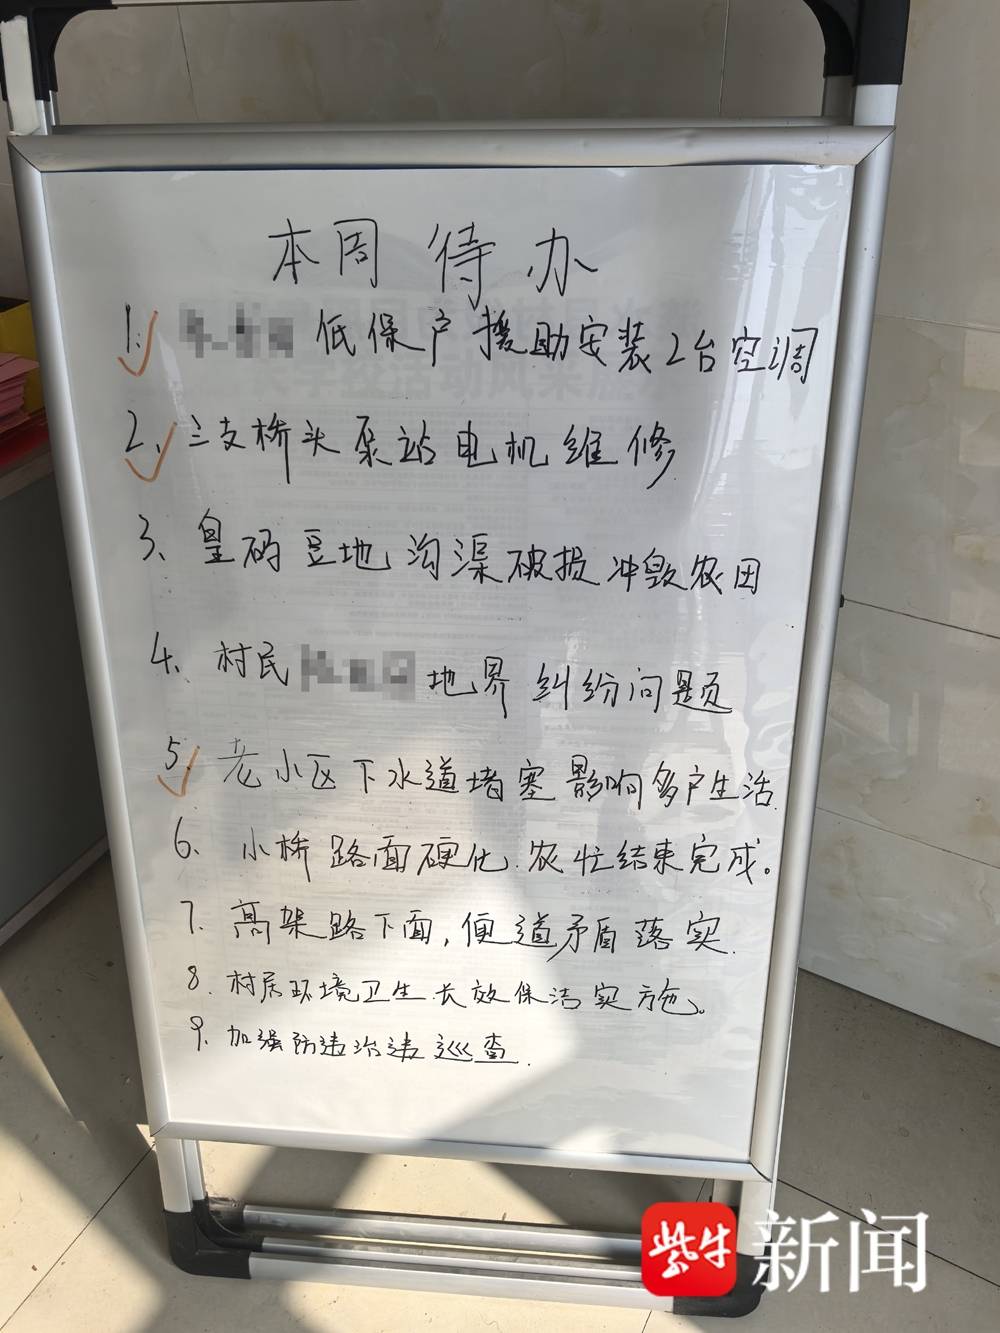 本周待办
1. 低保户援助安装2台空调
2、三支桥头泵站电机维修
3、皇码豆地沟渠破损冲毁农田
4、村民 地界纠纷问题
5、老小区下水道堵塞影响多户生活
6、小桥路面硬化.农忙结束完成。
7、高架路下面,便道矛盾落实.
8.村居环境卫生长效保洁实施。
9.加强防违治违巡查.
紫牛新闻